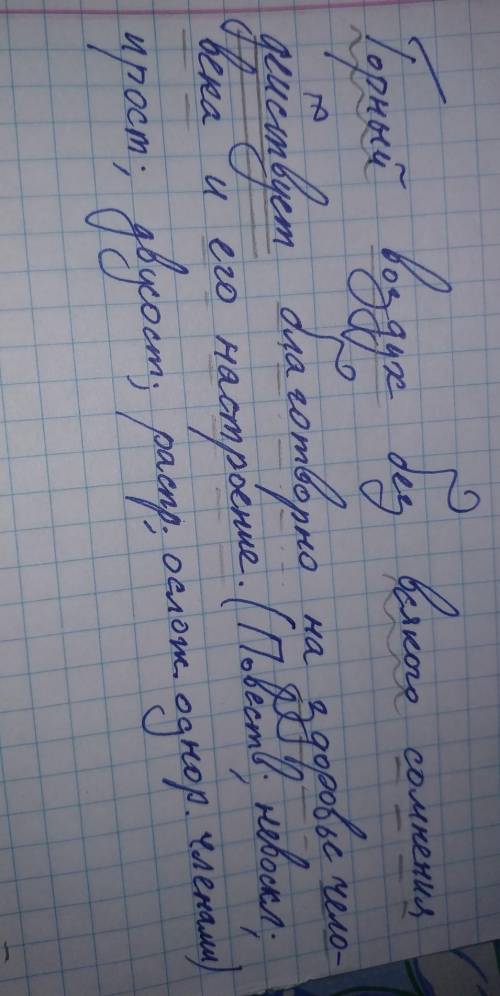 Горный воздух без всякого сомнения
действует благотворно на здоровье чело-
века и его настроение. (Повеств., невоскл.,
прост., двусост., распр., ослож. однор. членами)